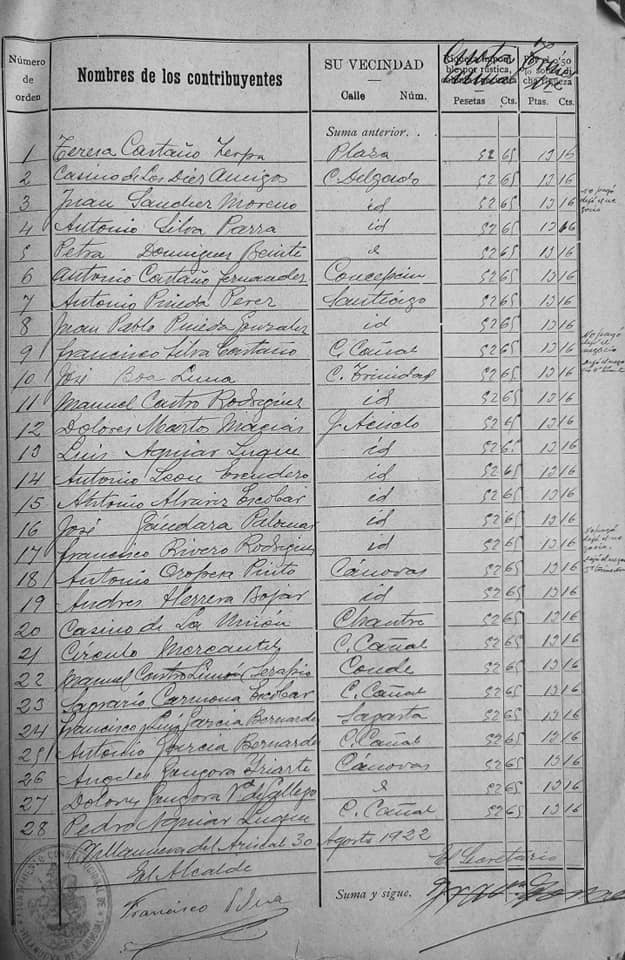 Número de orden Nombres de los contribuyentes SU VECINDAD Calle Núm. Pesetas Cts. Ptas. Cts.
Suma anterior. .
1 Teresa Castaño Plaza 52 65 13 16
2 Casino de Los Diez Amigos C. Delgado 52 65 13 16
3 Juan Sanchez Moreno id 52 65 13 16
4 Antonio Silva Parra id 52 65 13 16
5 Petra Dominguez Benite 52 65 13 16
6 Antonio Castaño Fernandez Concepcion 52 65 13 16
7 Antonio Pineda Perez Santiago 52 65 13 16
8 Juan Pablo Pineda Gonzalez id 52 65 13 16
9 Francisco Silva Castaño C. Cañal 52 65 13 16
10 José Boa Luna C. Trinidad 52 65 13 16
11 Manuel Castro Rodriguez id 52 65 13 16
12 Dolores Marto Macias 52 65 13 16
13 Luis Aguiar Luque id 52 65 13 16
14 Antonio Leon Escudero id 52 65 13 16
15 Antonio Alvarez Escobar id 52 65 13 16
16 José Gandara Palomas id 52 65 13 16
17 Francisco Rivero Rodriguez id 52 65 13 16
18 Antonio Oropesa Pinto Cánovas 52 65 13 16
19 Andres Herrera Bofar id 52 65 13 16
20 Casino de La Unión Chantre 52 65 13 16
21 Circulo Mercantil C. Cañal 52 65 13 16
22 Manuel Castro Limón Serapio Conde 52 65 13 16
23 Sagrario Carmona Escobar C. Cañal 52 65 13 16
24 Francisco y Luis Garcia Bernardez Sagasta 52 65 13 16
25 Antonio Garcia Bernardez C. Cañal 52 65 13 16
26 Angeles Gongora Iriarte Canovas 52 65 13 16
27 Dolores Gongora Vda de Gallego 52 65 13 16
28 Pedro Aguiar Luque C. Cañal 52 65 13 16
Villanueva del Ariscal 30 Agosto 1922
El Alcalde El Secretario
Francisco Silva
Suma y sigue.